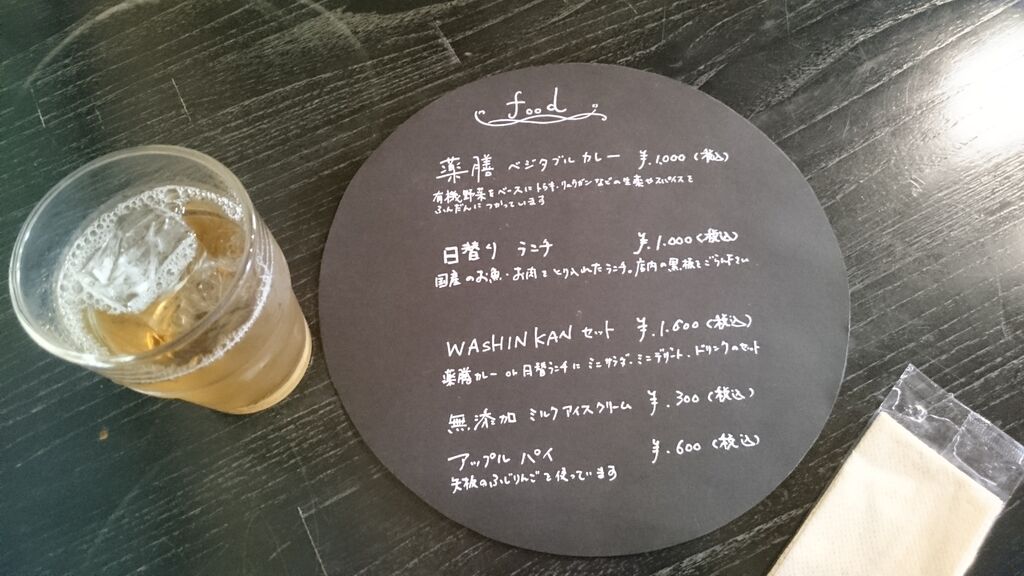 food
薬膳 ベジタブル カレー ¥.1.000 (税込)
有機野菜をベースに などの生薬やスパイスを
ふんだんにつかっています
日替り ランチ ¥.1.000 (税込)
国産のお魚・お肉をとり入れたランチ。店内の黒板をごらん下さい
WASHIN KAN セット ¥.1.600 (税込)
薬膳カレー or 日替ランチに ミニサラダ・ミニデザート・ドリンクのセット
無添加 ミルクアイスクリーム ¥.300 (税込)
アップル パイ ¥.600 (税込)
矢板のふじりんごを使っています